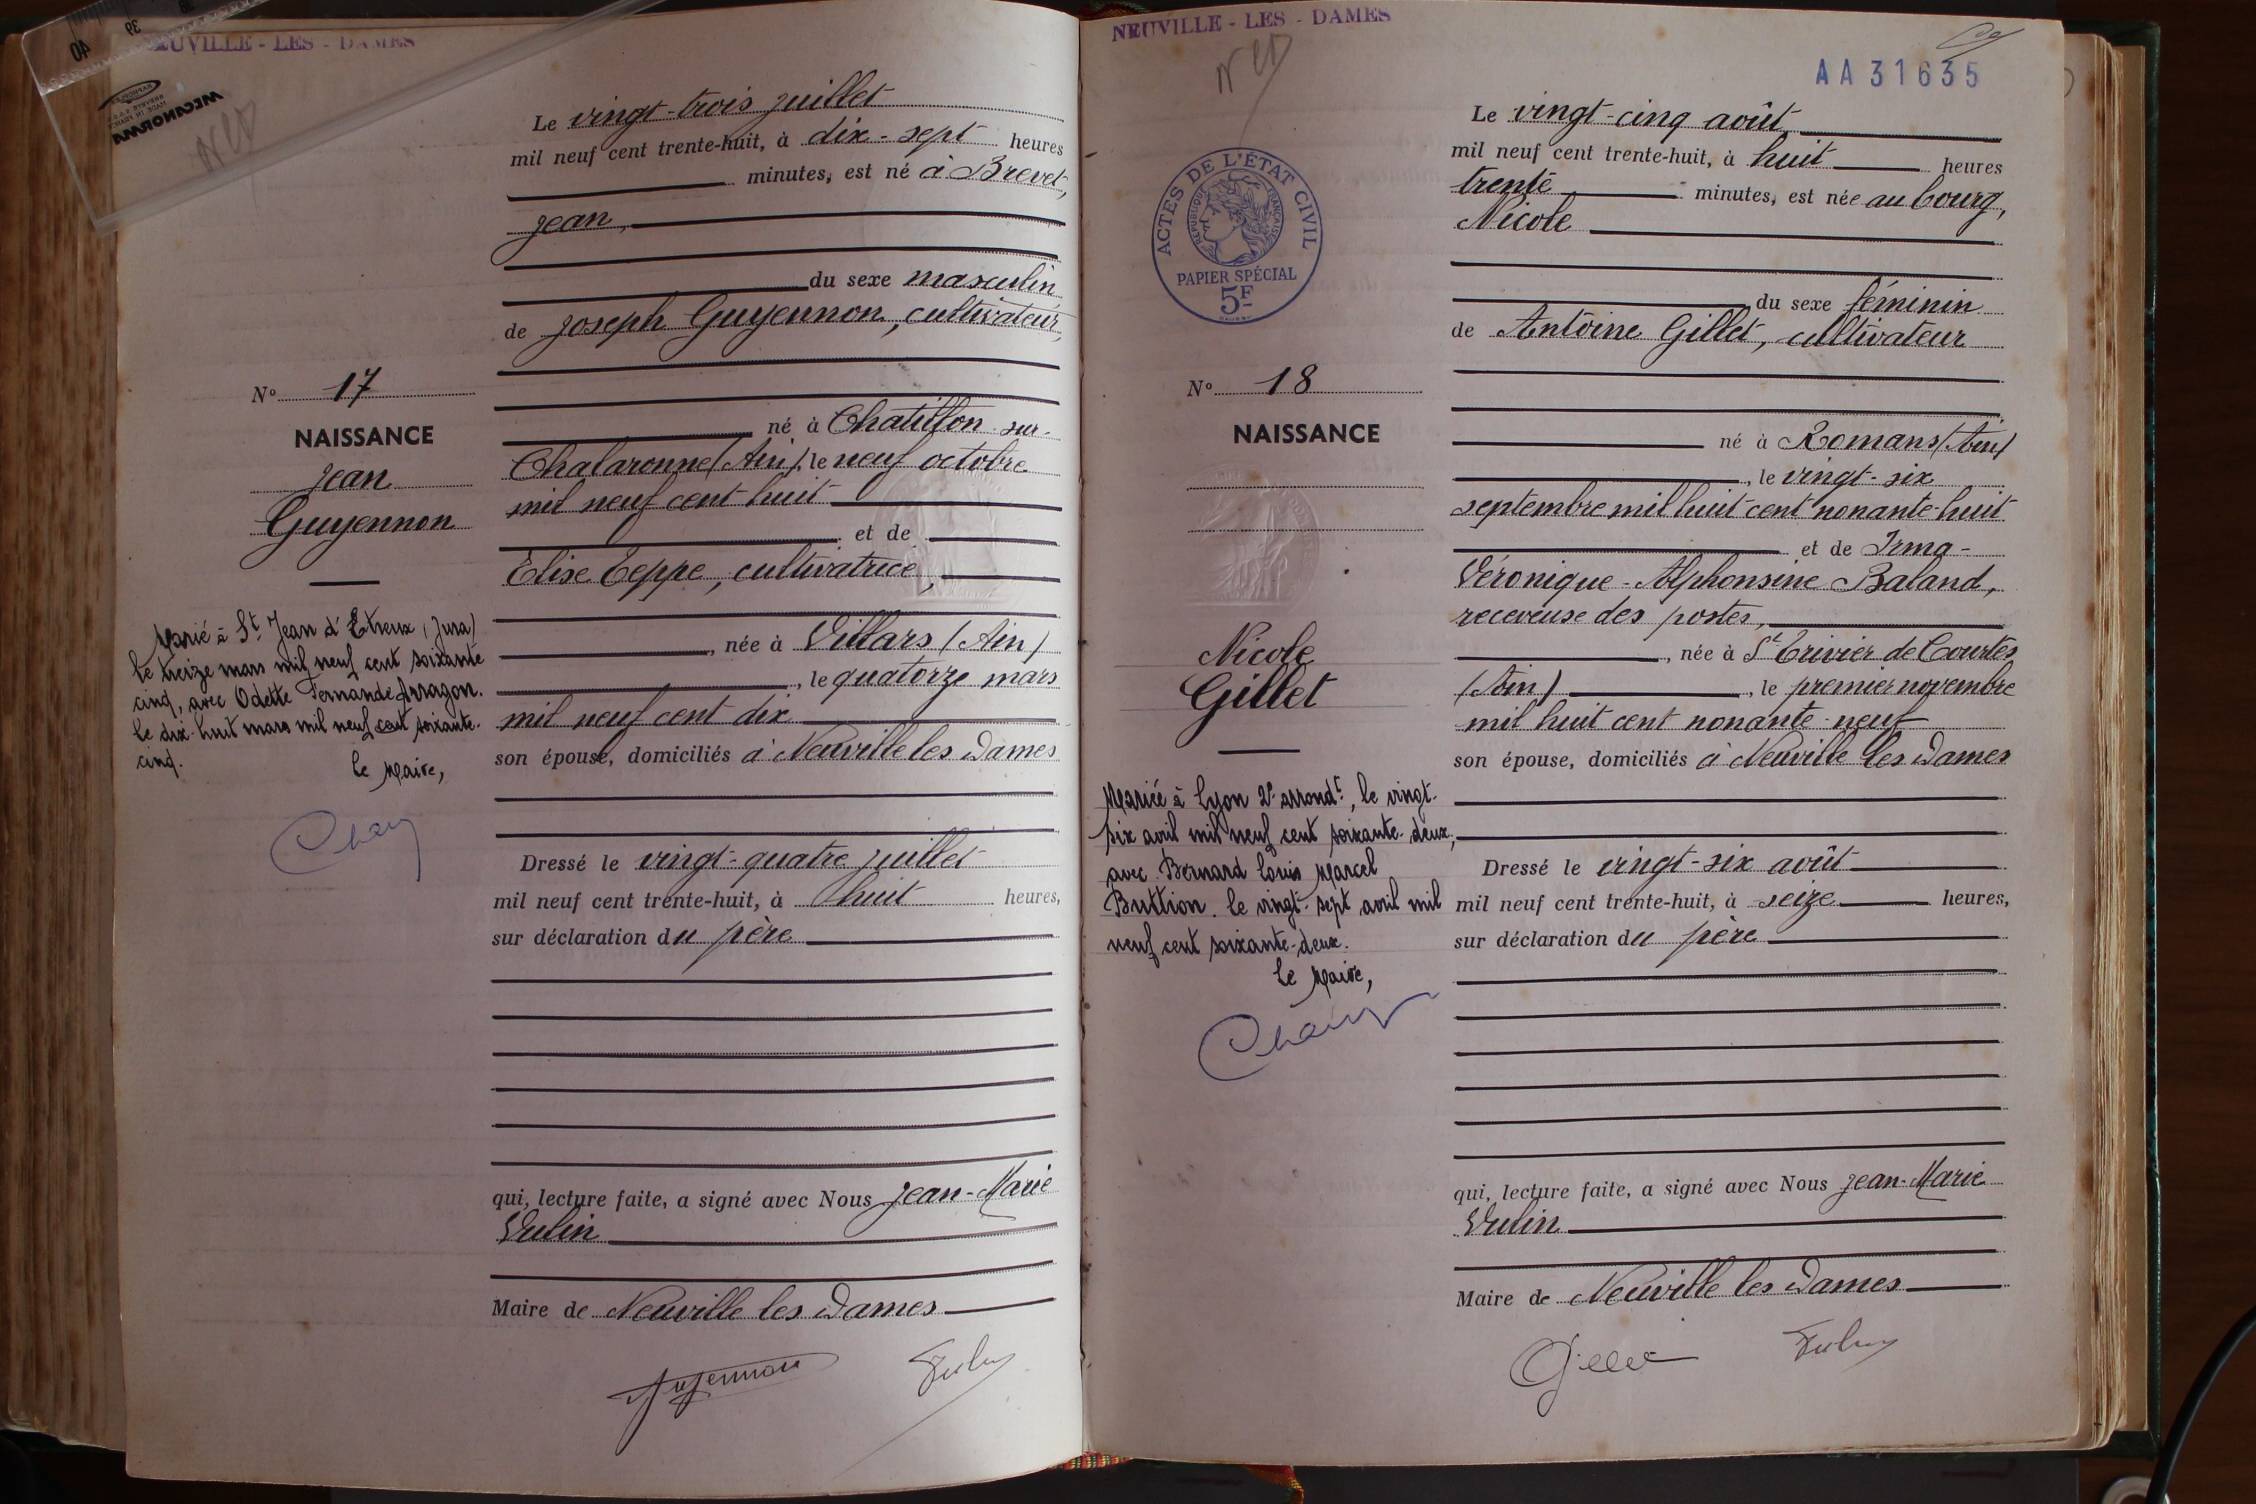 NEUVILLE - LES - DAMES
40
39
MECANORMA
NLD
Le vingt-trois juillet
mil neuf cent trente-huit, à dix-sept heures
minutes, est né à Brevet,
Jean,
du sexe masculin
de Joseph Guyennon, cultivateur,
né à Chatillon sur
Chalaronne (Ain), le neuf octobre
mil neuf cent huit
et de
Elise Teppe, cultivatrice,
, née à Villars (Ain)
, le quatorze mars
mil neuf cent dix
son épouse, domiciliés à Neuville les Dames
Dressé le vingt-quatre juillet
mil neuf cent trente-huit, à huit heures,
sur déclaration du père
qui, lecture faite, a signé avec Nous Jean-Marie
Vulin
Maire de Neuville les Dames
Guyennon Vulin
No 17
NAISSANCE
Jean
Guyennon
Marié à St Jean d'Etreux (Jura)
le treize mars mil neuf cent soixante
cinq, avec Odette Fernande Arragon.
le dix-huit mars mil neuf cent soixante-
cinq.
le Maire,
NEUVILLE - LES - DAMES
NLD
AA31635
ACTES DE L'ÉTAT CIVIL
RÉPUBLIQUE FRANÇAISE
PAPIER SPÉCIAL
5F
Le vingt-cinq août
mil neuf cent trente-huit, à huit heures
trente minutes, est née au bourg,
Nicole
du sexe féminin
de Antoine Gillet, cultivateur
né à Romans (Ain)
, le vingt-six
septembre mil huit cent nonante-huit
et de Irma-
Véronique-Alphonsine Baland,
receveuse des postes,
, née à St Trivier de Courtes
(Ain), le premier novembre
mil huit cent nonante-neuf
son épouse, domiciliés à Neuville les Dames
Dressé le vingt-six août
mil neuf cent trente-huit, à seize heures,
sur déclaration du père
qui, lecture faite, a signé avec Nous Jean-Marie
Vulin
Maire de Neuville les Dames
Gillet Vulin
No 18
NAISSANCE
Nicole
Gillet
Mariée à Lyon 2e arrondt, le vingt-
six avril mil neuf cent soixante-deux,
avec Bernard Louis Marcel
Buttion. le vingt-sept avril mil
neuf cent soixante-deux.
le Maire,